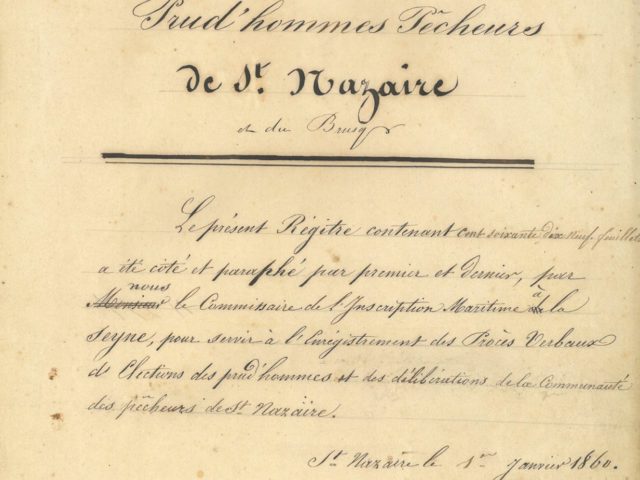 Prud'hommes Pêcheurs
de St. Nazaire
et du Brusq
Le présent Régitre contenant cent soixante dix neuf feuillets
a été coté et paraphé par premier et dernier, par
nous
Monsieur le Commissaire de l'Inscription Maritime à la
Seyne, pour servir à l'Enrégistrement des Procès Verbaux
ds Elections des prud'hommes et des délibérations de la Communauté
des pêcheurs de St. Nazaire.
St. Nazaire le 1er Janvier 1860.